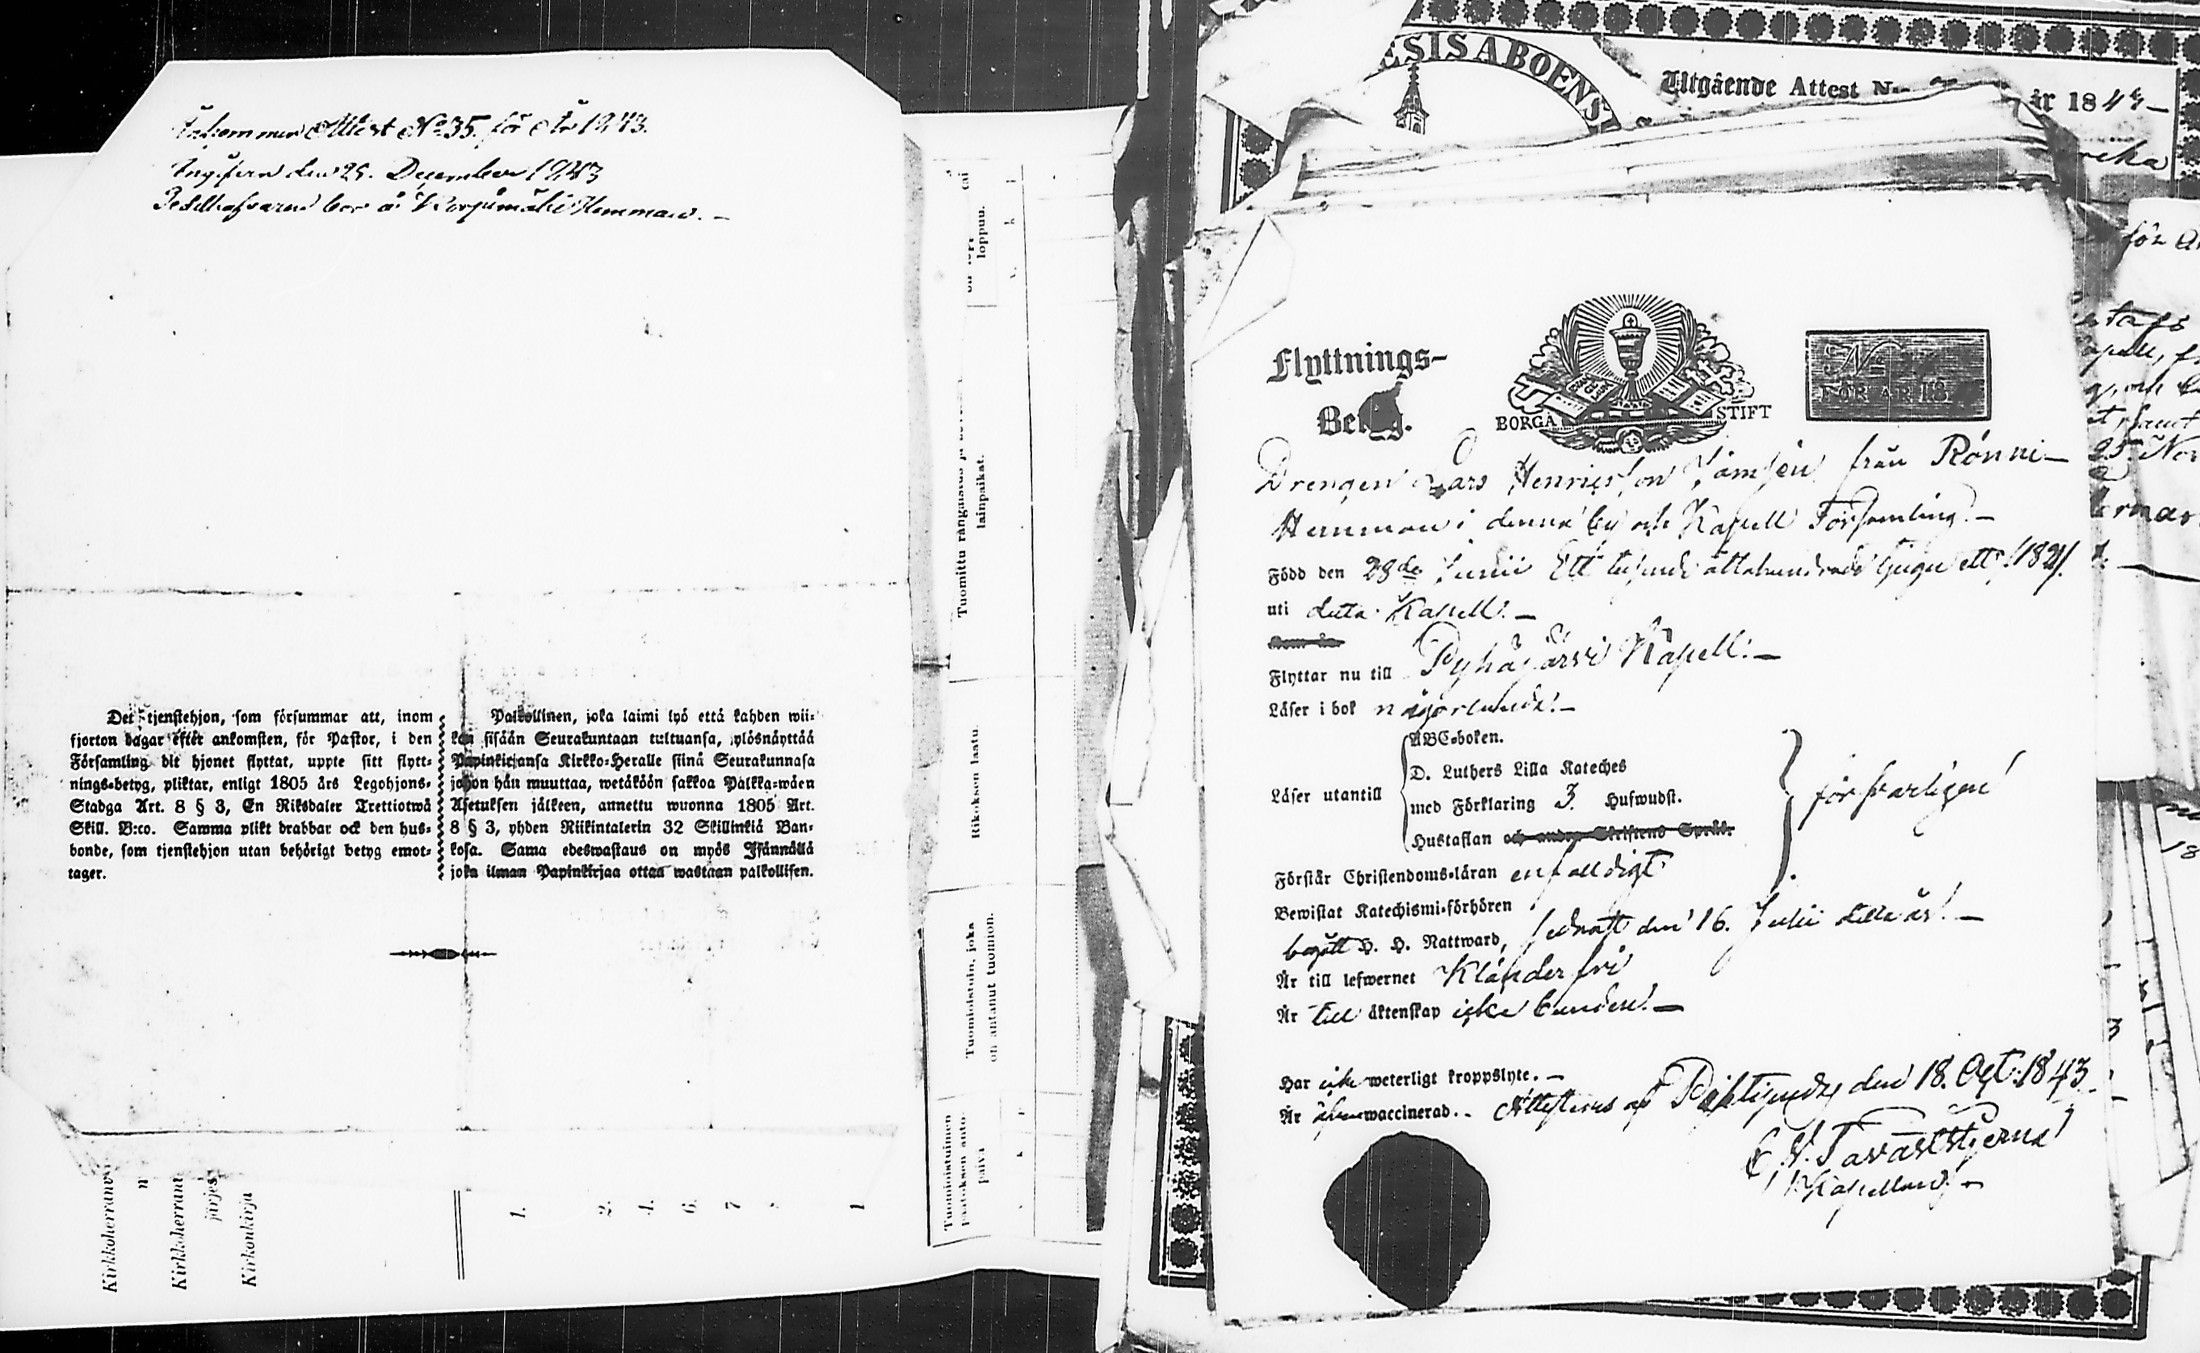 Inkommen Attest No 35. för År 1843.
Ingifven den 25. December 1843
Hemman. –
Det tjenstehjon, som försummar att, inom
fjorton dagar efter ankomsten, för Pastor, i den
Församling dit hjonet flyttat, uppte sitt flytt=
nings=betyg, pliktar, enligt 1805 års Legohjons=
Stadga Art. 8 § 3, En Riksdaler Trettiotwå
Skill. B:co. Samma plikt drabbar ock den hus=
bonde, som tjenstehjon utan behörigt betyg emot=
tager.
Palkollinen, joka laimi lyö että kahden wii=
kon sisään Seurakuntaan tultuansa, ylösnäyttää
Papinkirjansa Kirkko=Heralle siinä Seurakunnasa
johon hän muuttaa, wetäköön sakkoa Palkka=wäen
Asetuksen jälkeen, annettu wuonna 1805 Art.
8 § 3, yhden Riikintalerin 32 Skillinkiä Ban=
kosa. Sama edeswastaus on myös Isännällä
joka ilman Papinkirjaa ottaa wastaan palkollisen.
Kirkkoherranv
Kirkkoherrant
järjes
Kirkonkirja
1. 2. 4. 6. 7
loppuu.
Tuomittu rangaistus ja
lainpaikat.
Rikoksen laatu.
Tuomioistuin, joka
on antanut tuomion.
Tuomioistuimen
paatoksen anto-
paiva
ESIS ABOENS
Utgående Attest No
år 1843 –
för
25 Nov
Flyttnings-
Betyg.
BORGÅ STIFT
No
FÖR ÅR 18
Drengen Lars Henricsson Jämsén från Rönni –
Hemman i denna by och Kapell Församling. –
Född den 28de Junii Ett tusende åttahundrade tjugu ett, 1821.
uti detta Kapell. –
Flyttar nu till Pyhäjärvi Kapell. –
Läser i bok någorlunda. –
Läser utantill
ABC=boken.
D. Luthers Lilla Kateches
med Förklaring 3. Hufwudst.
Hustaflan och andra Skriftens Språk.
försvarligen
Förstår Christendoms=läran enfalldigt
Bewistat Katechismi=förhören
begått H. H. Nattward, sednast den 16. Julii detta år. –
Är till lefwernet Klanderfri
Är till äktenskap icke bunden. –
Har icke weterligt kroppslyte. –
Är äfven waccinerad. – Attesteras af den 18. Oct. 1843
Tavaststjerna
Kapellan. –